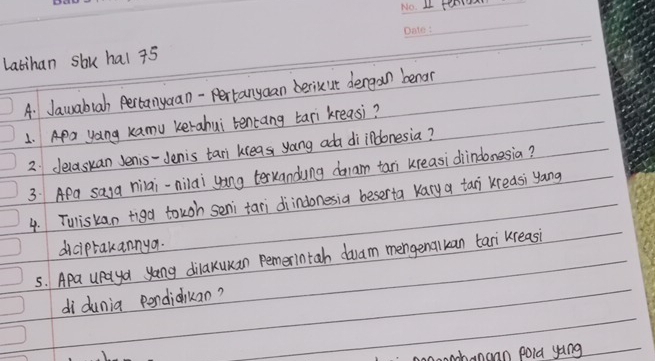 No. II
Date :
Latihan sbk hal 75
A. Jawablah Pertanyaan - Pertanyaan berikut dengan benar
1. Apa yang kamu ketahui tentang tari kreasi?
2. Jelaskan Jenis-Jenis tari kreasi yang ada di indonesia?
3. Apa saja nilai-nilai yang terkandung dalam tari kreasi diindonesia?
4. Tuliskan tiga tokoh seni tari diindonesia beserta karya tari kreasi yang
diciptakannya.
5. Apa upaya yang dilakukan Pemerintah dalam mengenalkan tari kreasi
di dunia Pendidikan?
pola yang